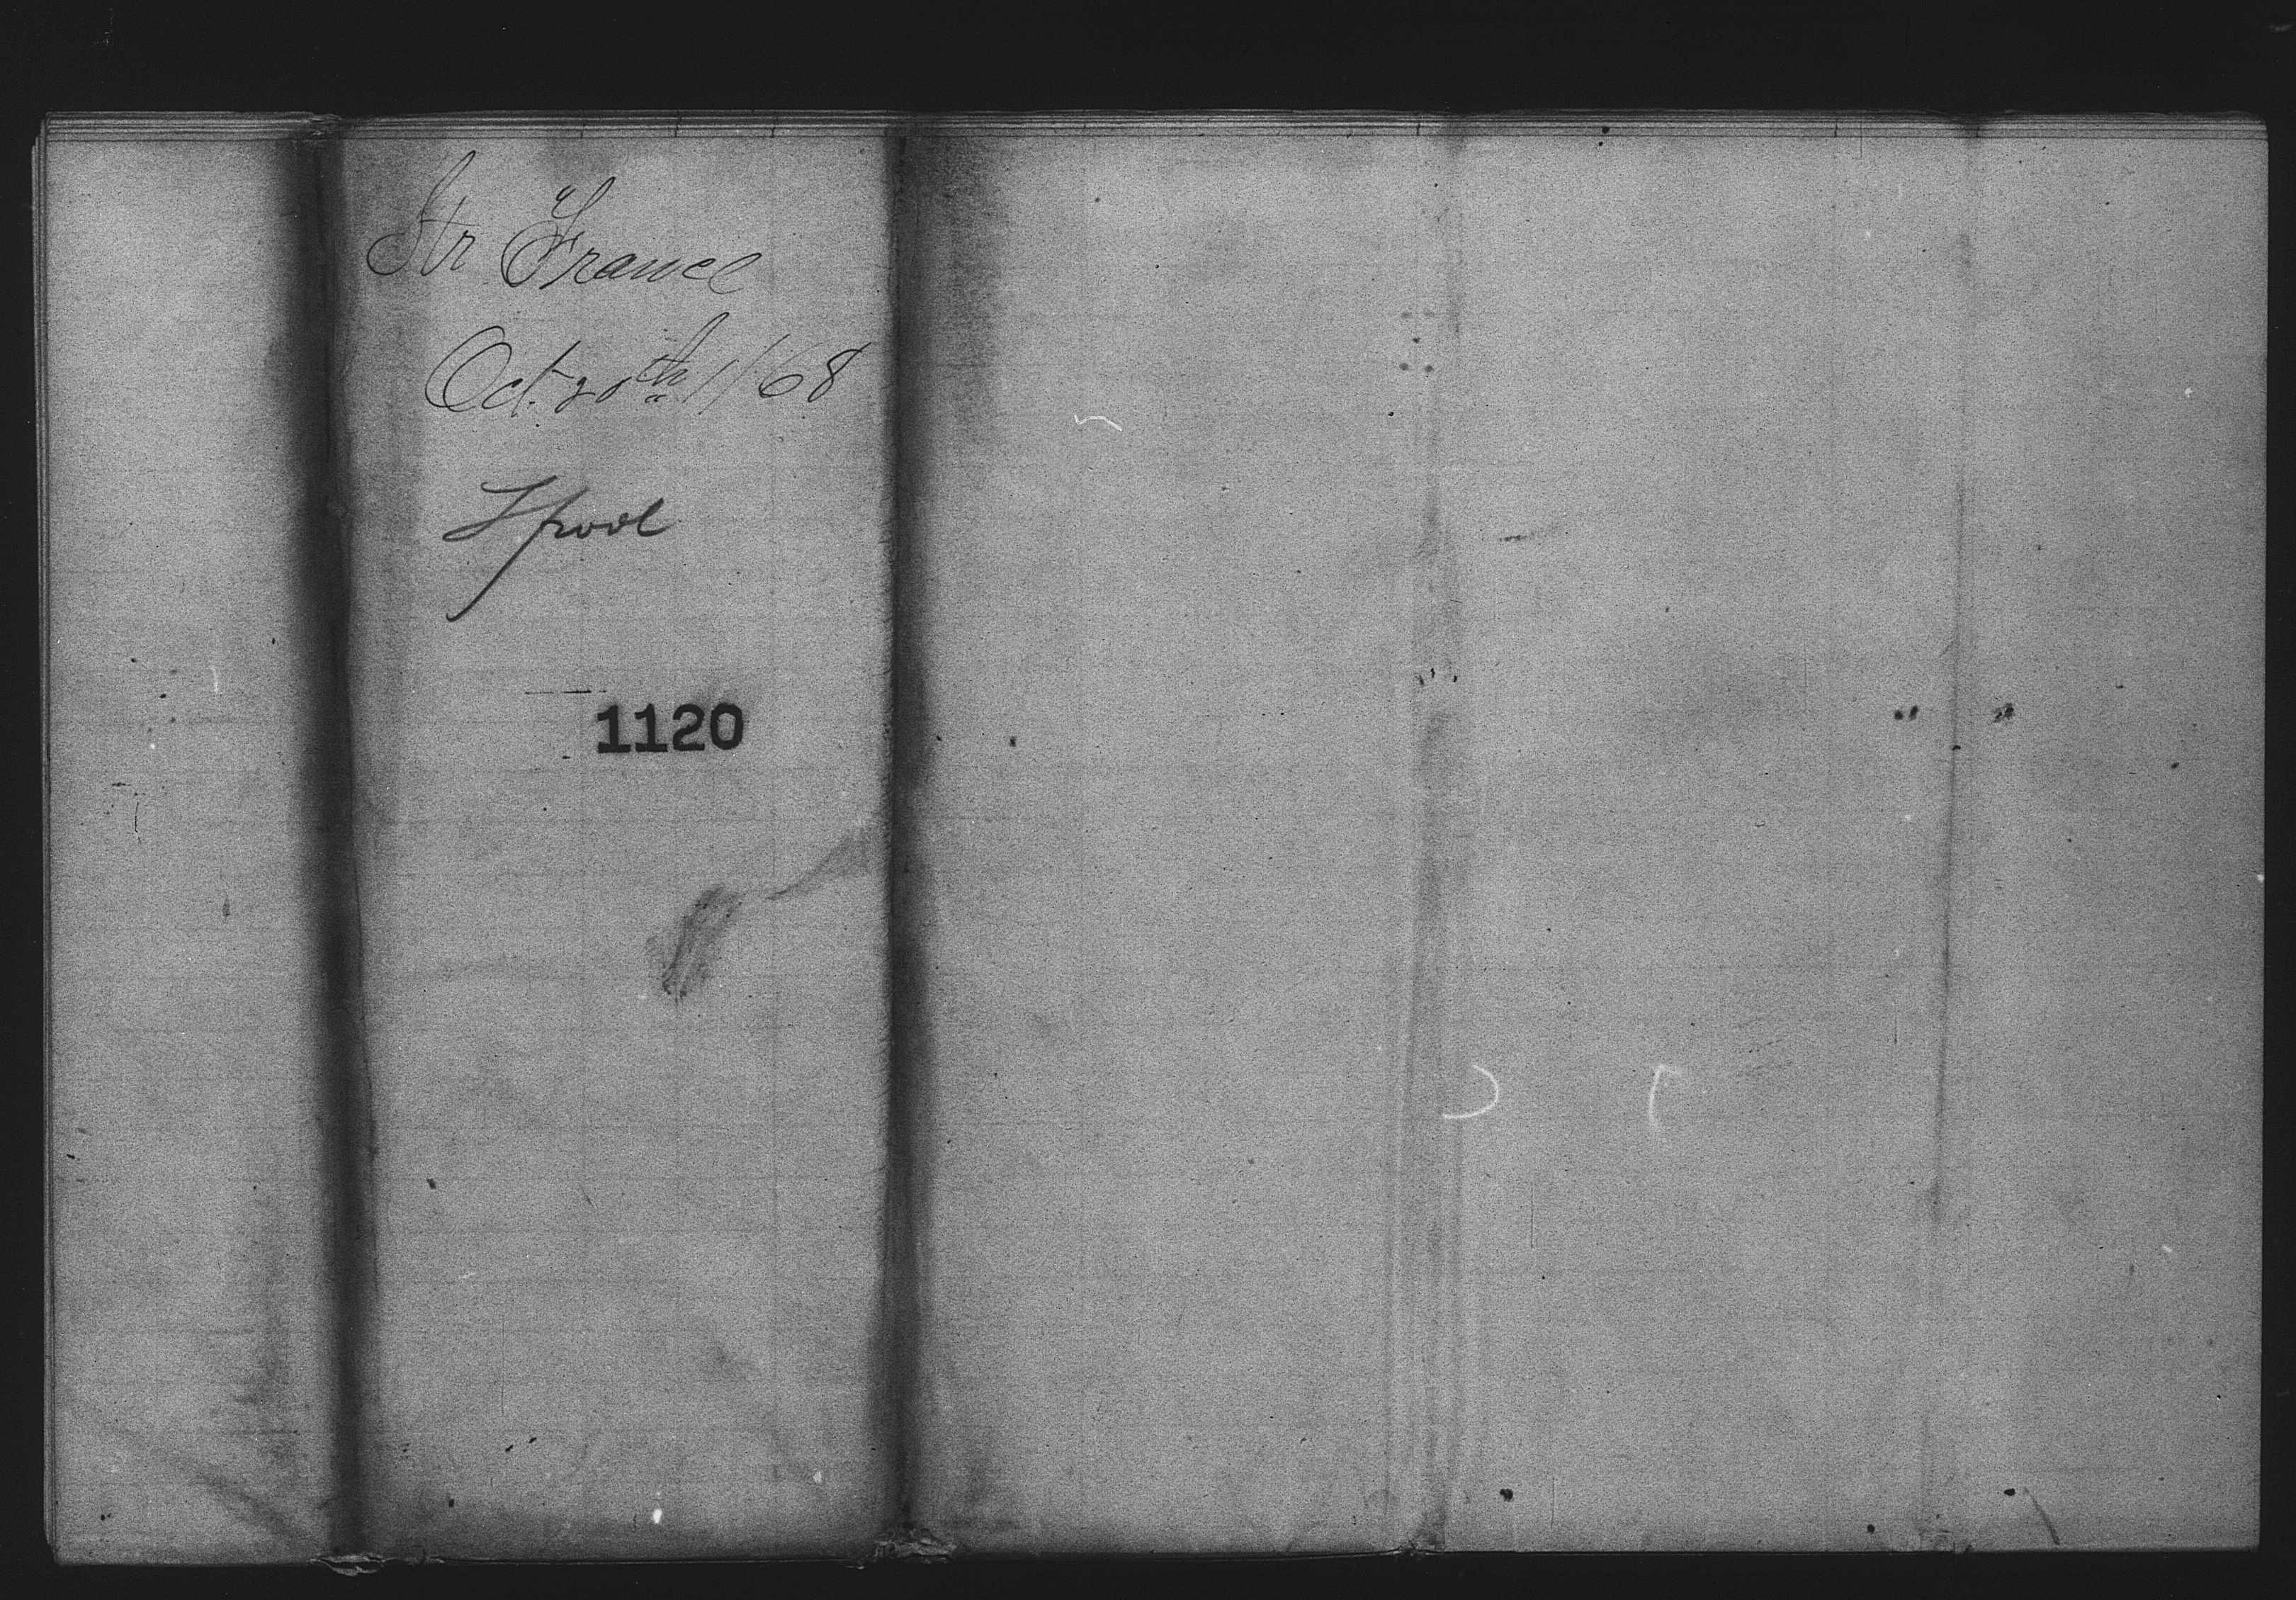 Str France
Oct. 20th 1/68
Lpool
1120